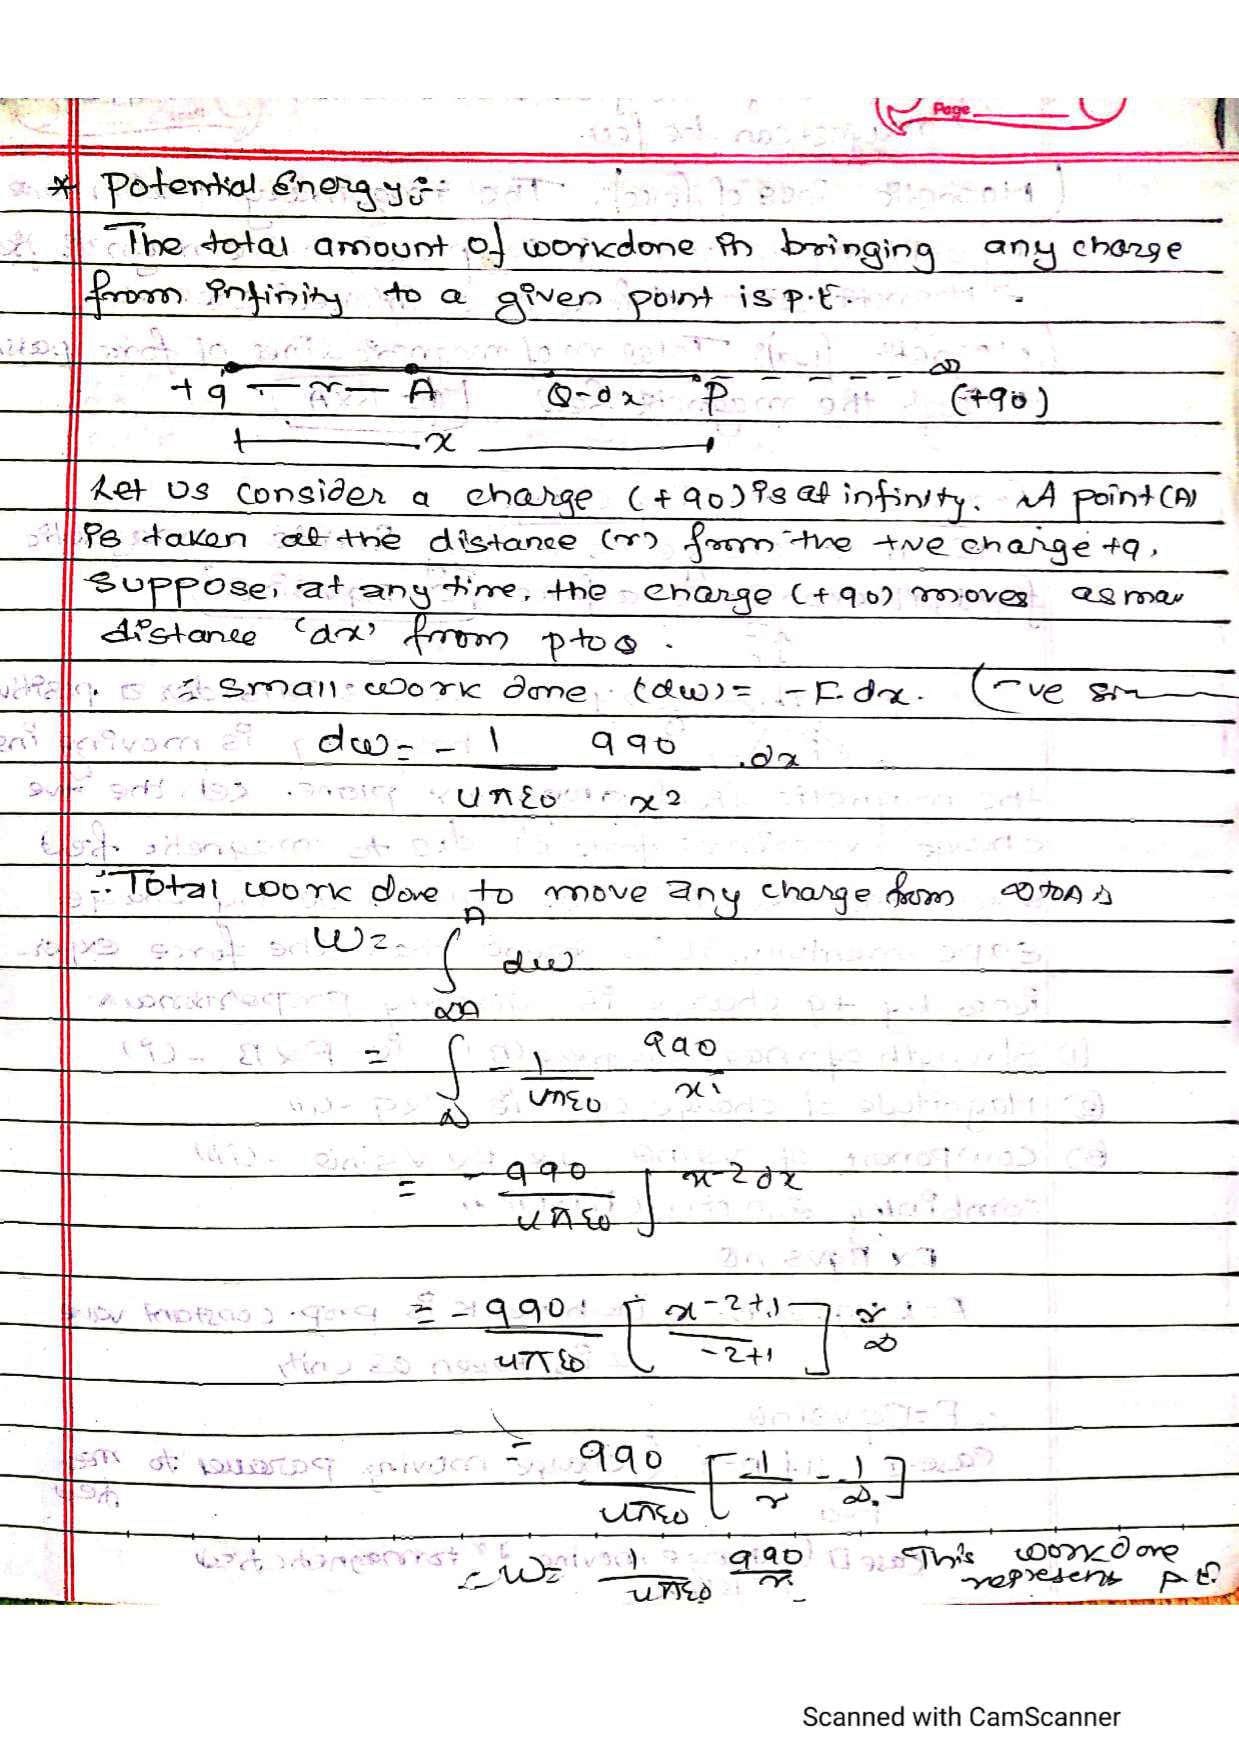 Page
* Potential Energy:-
The total amount of workdone in bringing any charge
from infinity to a given point is P.E.
∞
+q - r - A Q-dx P (+q0)
x
Let us consider a charge (+q0) is at infinity. A point (A)
is taken at the distance (r) from the +ve charge +q.
Suppose, at any time, the charge (+q0) moves
distance 'dx' from P to Q.
∴ small work done (dw) = -F.dx. (-ve
dw = - 1/4πε0 qq0/x2 .dx
∴ Total work done to move any charge from ∞ to A is
W = ∫ A ∞ dw
= ∫ A ∞ - 1/4πε0 qq0/x2
= - qq0/4πε0 ∫ x-2 dx
= - qq0/4πε0 [ x-2+1 / -2+1 ] r ∞
= qq0/4πε0 [ 1/r - 1/∞ ]
∴ W = 1/4πε0 qq0/r This workdone
represents P.E.
Scanned with CamScanner